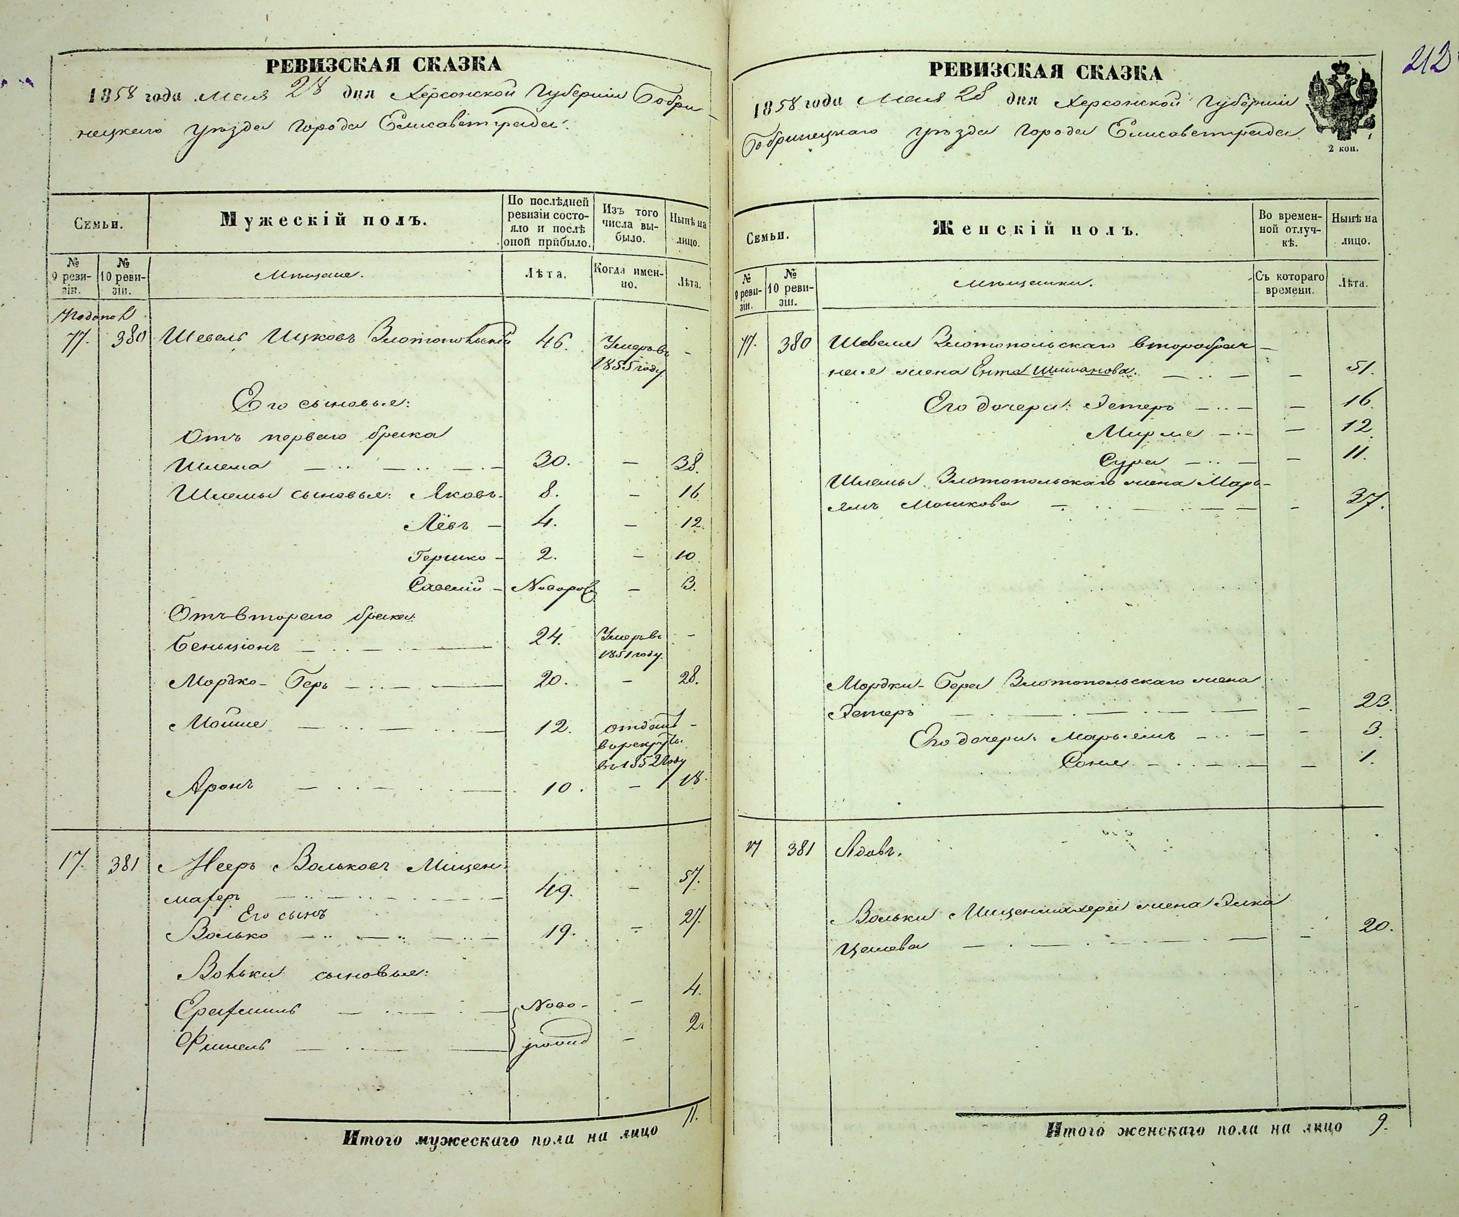 РЕВИЗСКАЯ СКАЗКА
1858 года Мая 28 дня Херсонской Губерніи Бобри-
нецкаго уѣзда города Елисаветграда.
Семьи.
Мужескій полъ.
По послѣдней ревизіи состояло и послѣ оной прибыло.
Изъ того числа выбыло.
Нынѣ на лицо.
№ 9 ревизіи.
№ 10 ревизіи.
Мѣщане.
Лѣта.
Когда именно.
Лѣта.
77. 380 Шевель Ицковъ Златопольскій 46. Умеръ въ 1855 году –
Его сыновья:
Отъ перваго брака
Шлема 30. – 38.
Шлемы сыновья: Яковъ 8. – 16
Лёвъ 4. – 12.
Гершко 2. – 10
Савелій Новорож – 3.
Отъ втораго брака
Беньціонъ 24. Умеръ въ 1851 году. –
Мордко-Беръ 20. – 28.
Мошие 12. отданъ в рекруты въ 1852 году –
Аронъ 10. – 18.
17. 381 Мееръ Вольковъ Мицен-
махеръ 49. – 57.
Его сынъ
Волько 19. – 27.
Вольки сыновья:
Ерахмиль Ново- – 4.
Фишель рожд – 2.
11.
Итого мужескаго пола на лицо
212
РЕВИЗСКАЯ СКАЗКА
1858 года Мая 28 дня Херсонской Губерніи
Бобринецкаго уѣзда города Елисаветграда
2 коп.
Семьи.
Женскій полъ.
Во временной отлучкѣ.
Нынѣ на лицо.
№ 9 ревизіи.
№ 10 ревизіи.
Мѣщанки.
Съ котораго времени.
Лѣта.
77. 380 Шевеля Златопольскаго второбрач-
ная жена Ента Шимановa. – 51.
Его дочери: Эстеръ – 16
Мирля – 12
Сура – 11.
Шлемы Златопольскаго жена Марь-
ямъ Мошкова – 37.
Мордки-Бера Златопольскаго жена
Эстеръ – 23.
Его дочери: Марьямъ – 3.
Соня – 1.
17 381 Вдовъ.
Вольки Миценмахера жена Элка
Цалева – 20.
Итого женскаго пола на лицо 9.